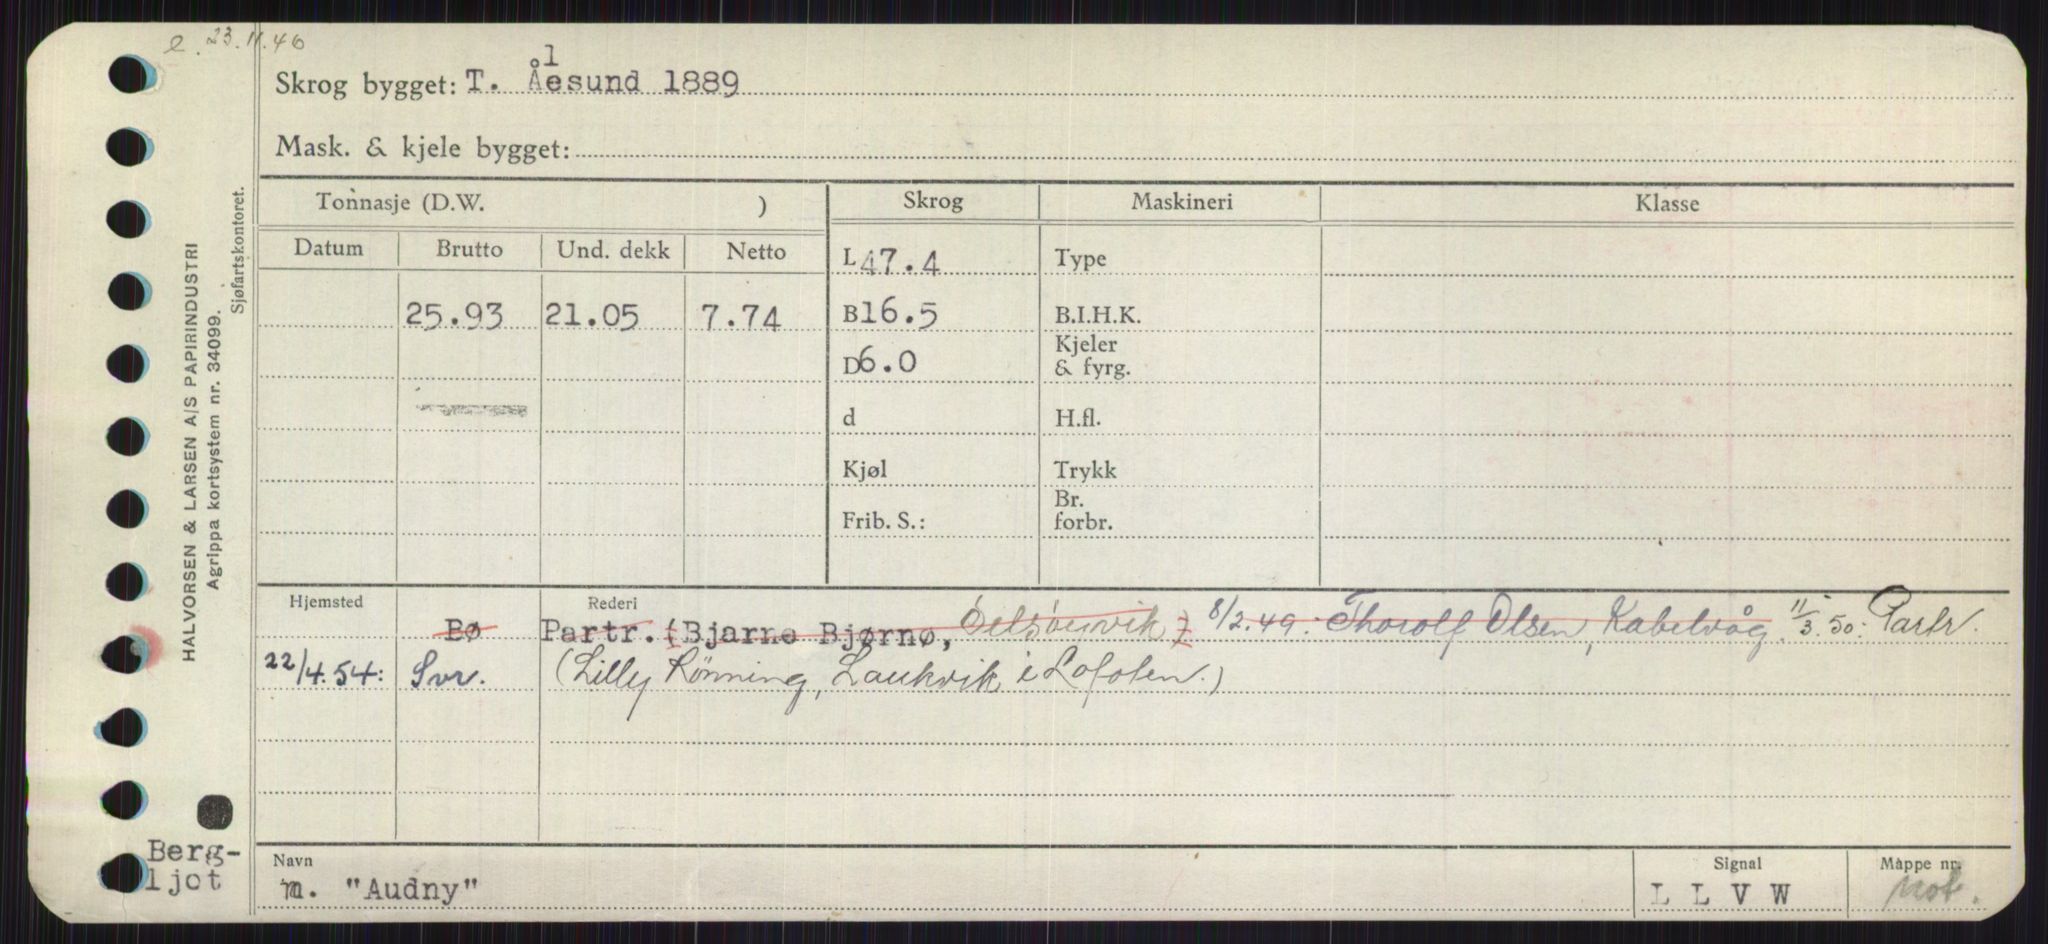 e. 23.11.46
Skrog bygget: T. Ålesund 1889
Mask. & kjele bygget:
Tonnasje (D.W. ) Skrog Maskineri Klasse
Datum Brutto Und. dekk Netto
L 47.4 Type
25.93 21.05 7.74 B 16.5 B.I.H.K.
D 6.0 Kjeler & fyrg.
d H.fl.
Kjøl Trykk
Frib. S.: Br. forbr.
Hjemsted Rederi
Bø Partr. (Bjarne Bjørnø, ) 8/2.49. Thorolf Olsen, Kabelvåg. 11/3.50: Partr.
22/4.54: Svr. (Lilly Rönning, Laukvik i Lofoten.)
Navn Signal Mappe nr.
m. "Audny" L L V W mot.
Berg-
ljot
HALVORSEN & LARSEN A/S PAPIRINDUSTRI
Agrippa kortsystem nr. 34099.
Sjøfartskontoret.